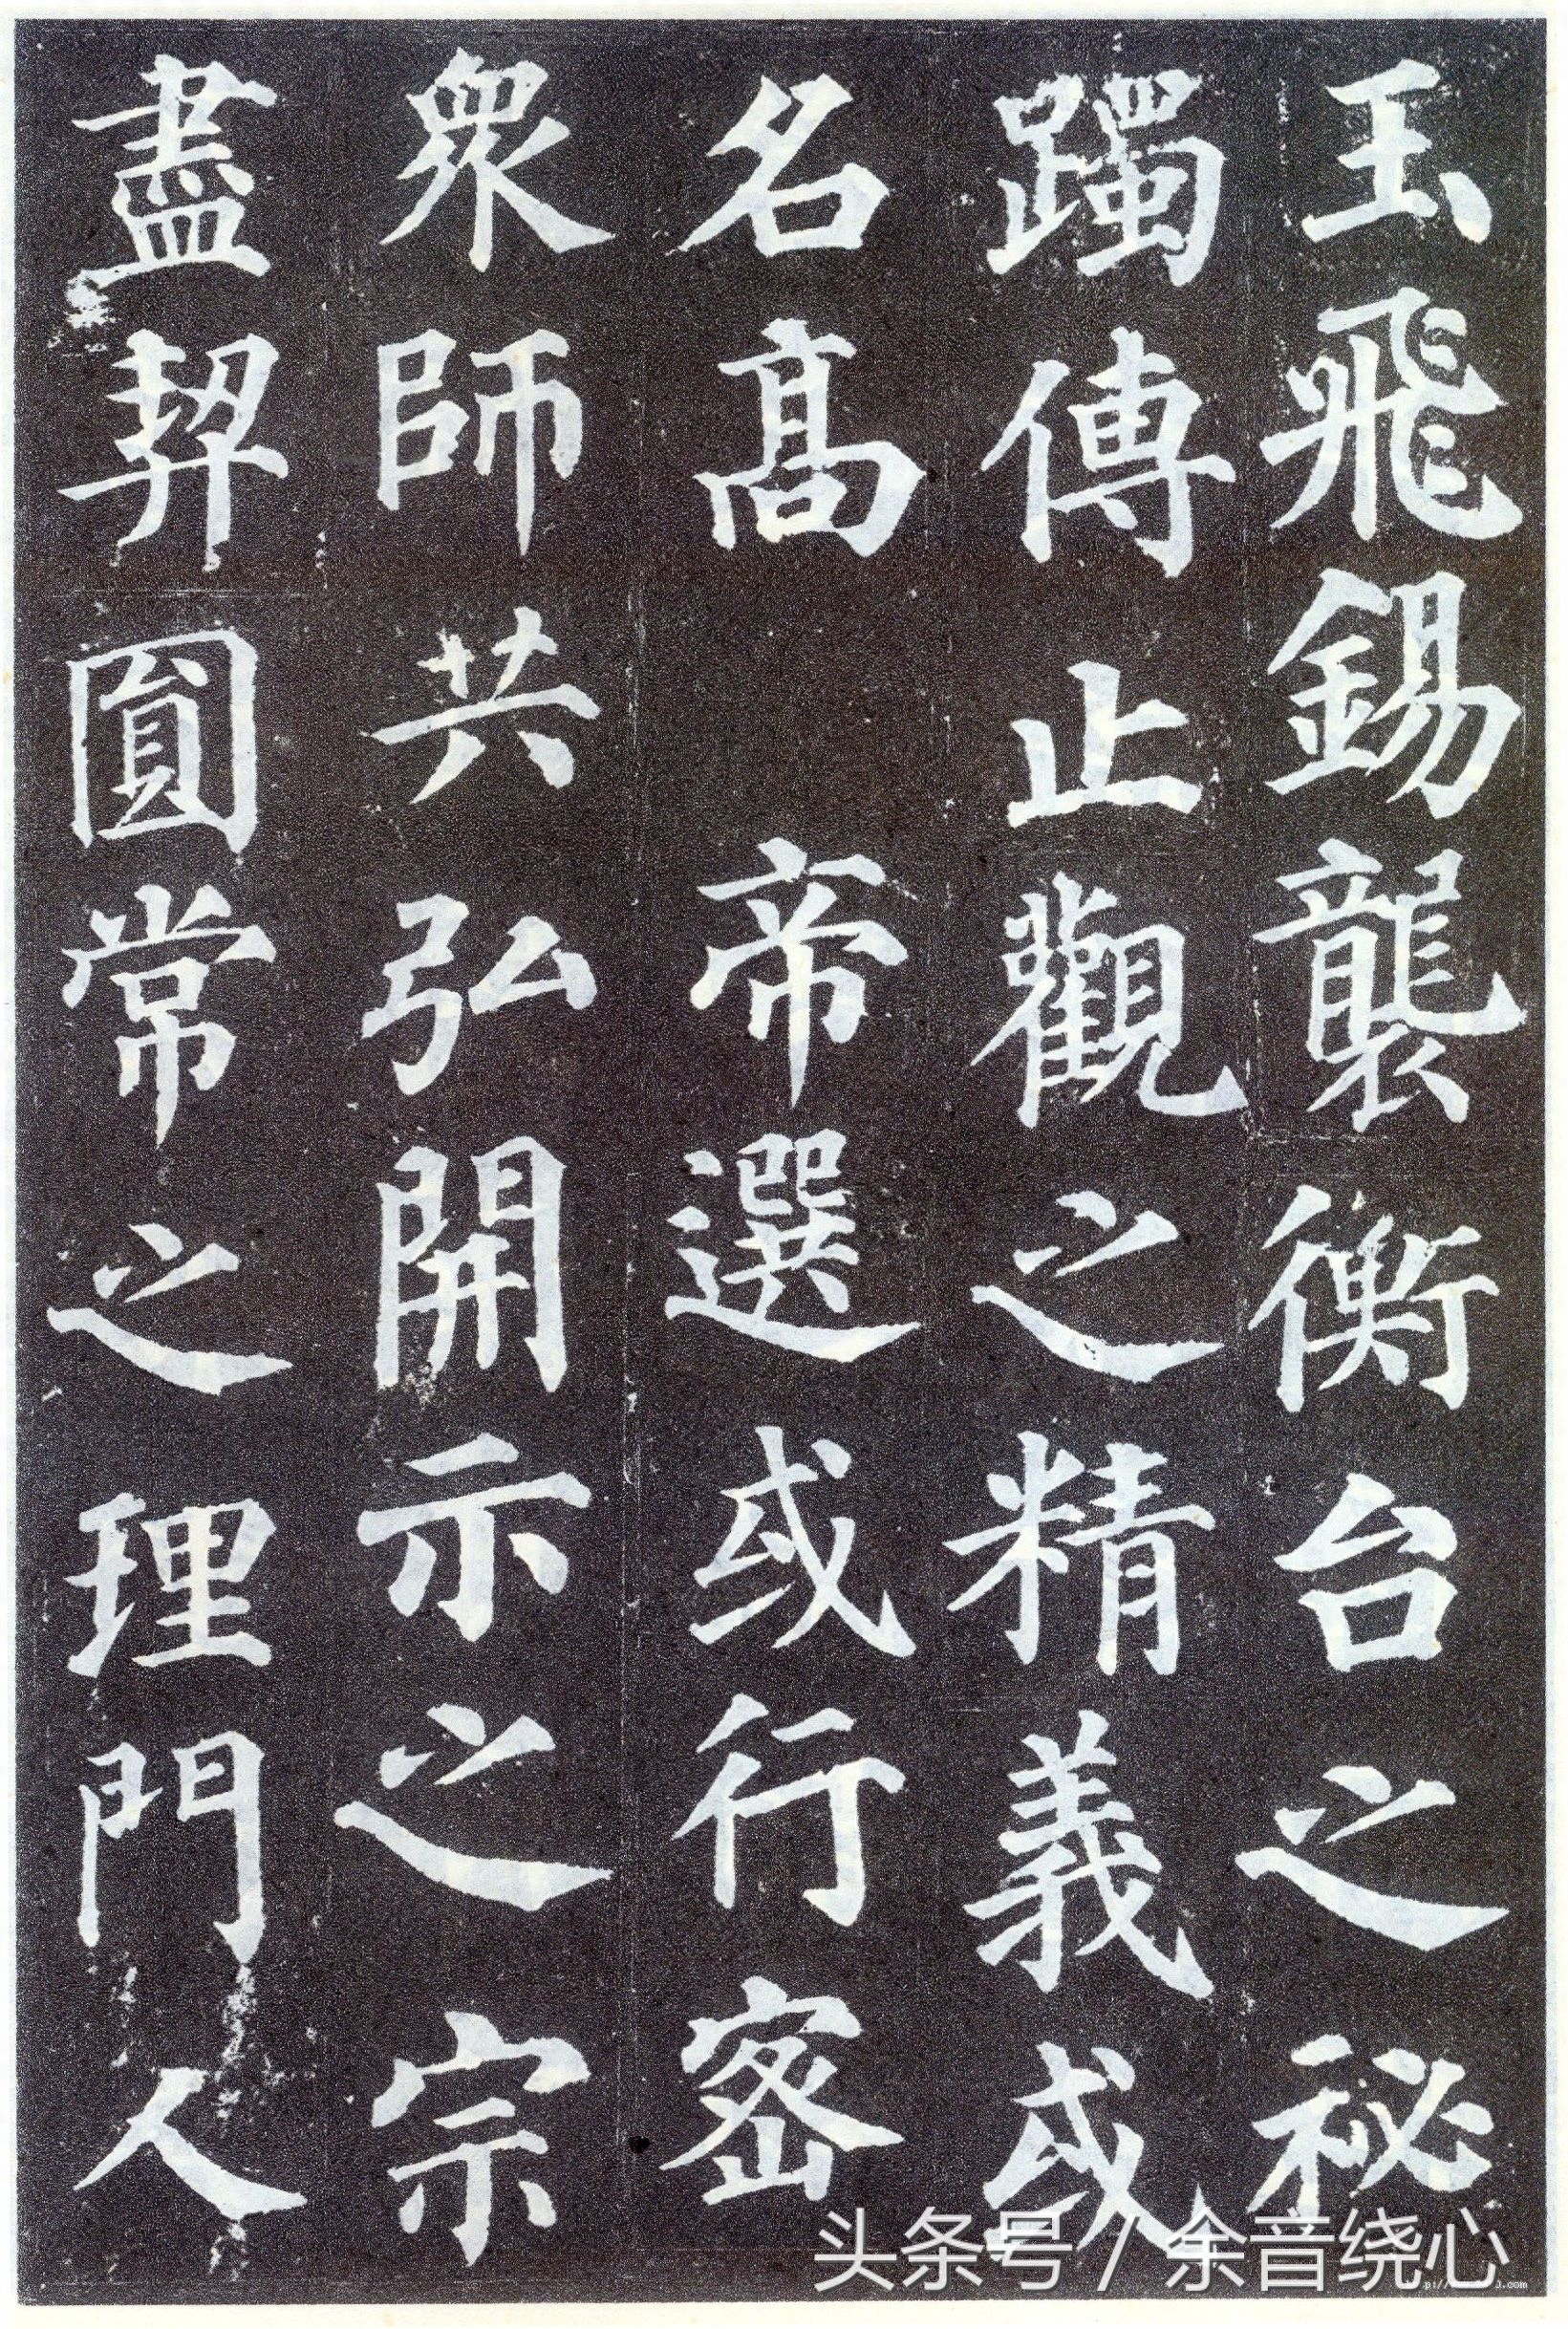 玉飛錫襲衡台之秘
躅傳止觀之精義或
名高　帝選或行密
衆師共弘開示之宗
盡契圓常之理門人
头条号 / 余音绕心